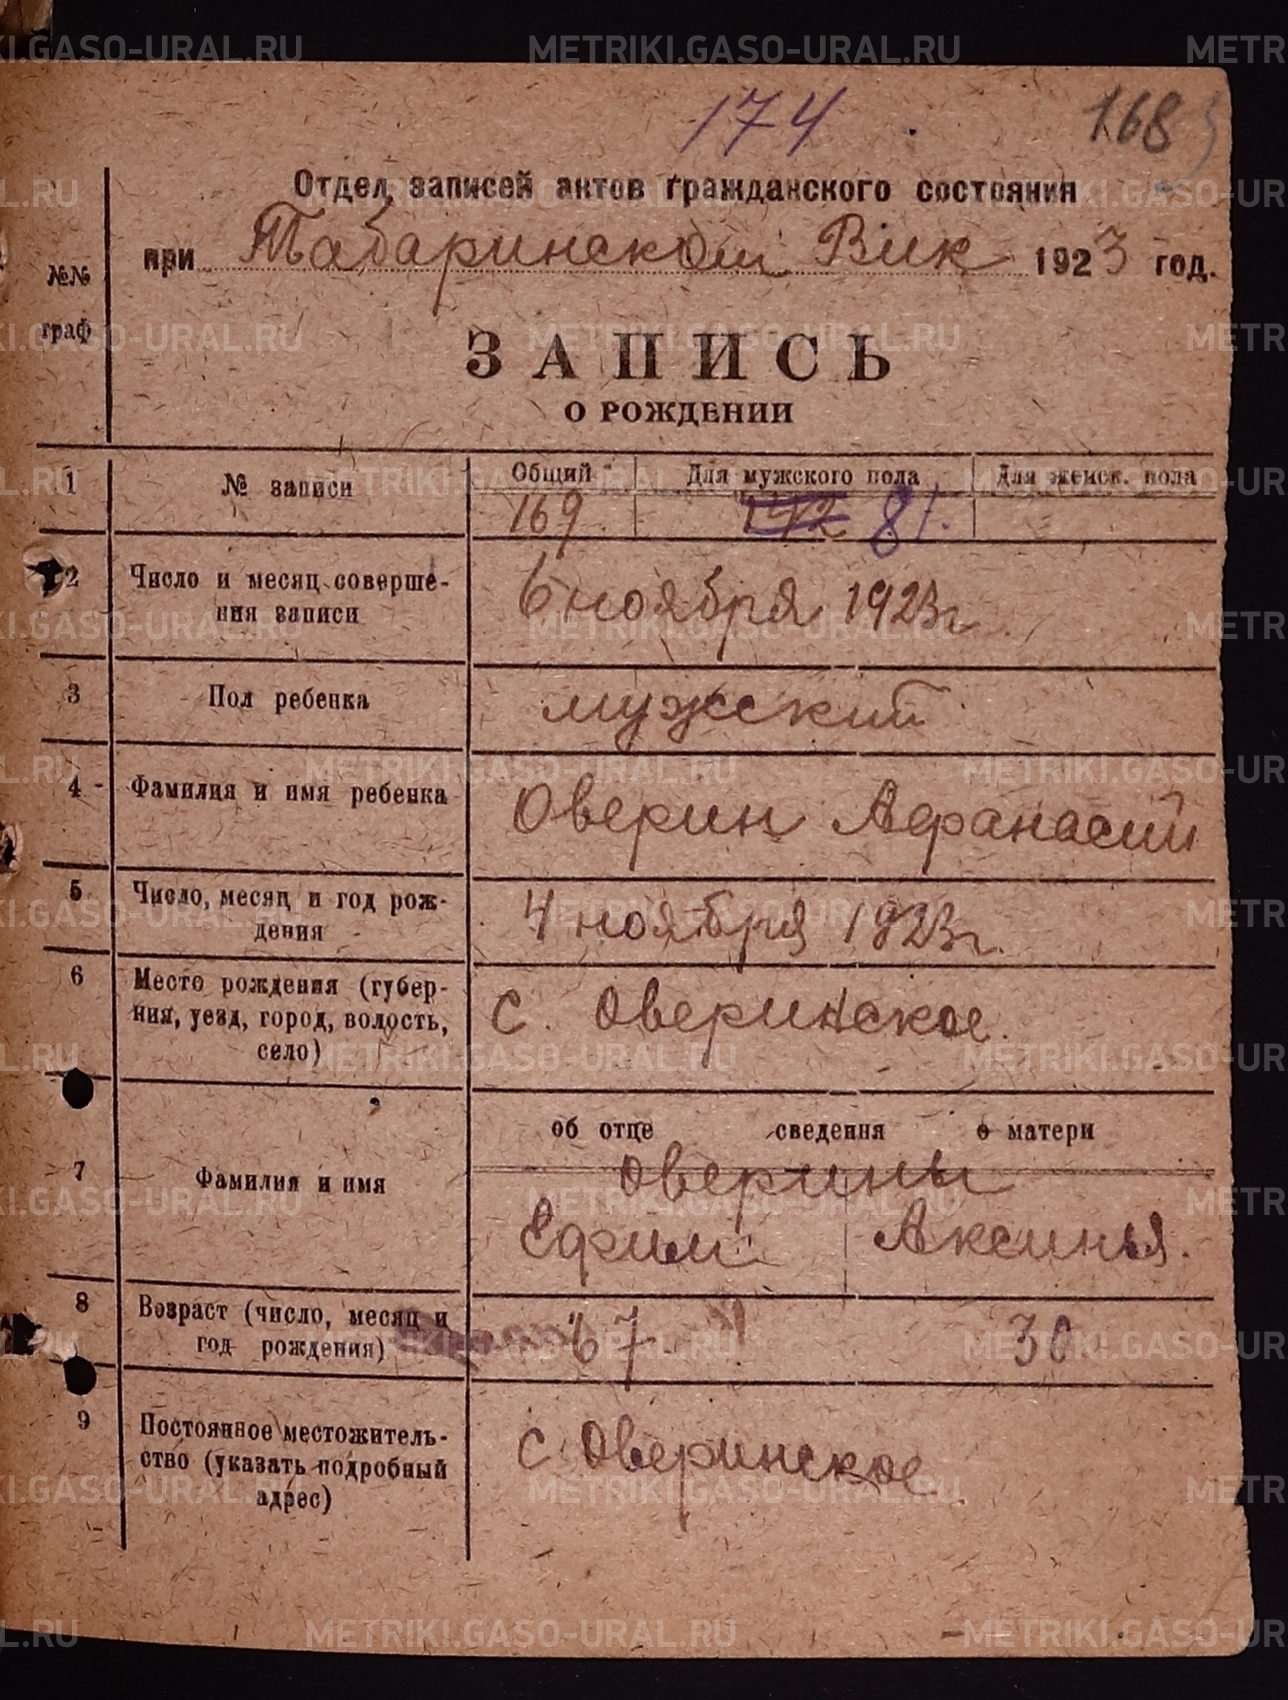 174 168
Отдел записей актов гражданского состояния
при Табаринском Вик 1923 год.
№№ граф
ЗАПИСЬ
О РОЖДЕНИИ
1 № записи Общий Для мужского пола Для женск. пола
169 172 81.
2 Число и месяц соверше-
ния записи
6 ноября 1923 г
3 Пол ребенка мужский
4 Фамилия и имя ребенка Оверин Афанасий
5 Число, месяц и год рож-
дения
4 ноября 1923 г.
6 Место рождения (губер-
ния, уезд, город, волость,
село)
с. Оверинское.
об отце сведения о матери
7 Фамилия и имя Оверины
Ефим Аксинья.
8 Возраст (число, месяц и
год рождения)
67 30
9 Постоянное местожитель-
ство (указать подробный
адрес)
с Оверинское
METRIKI.GASO-URAL.RU